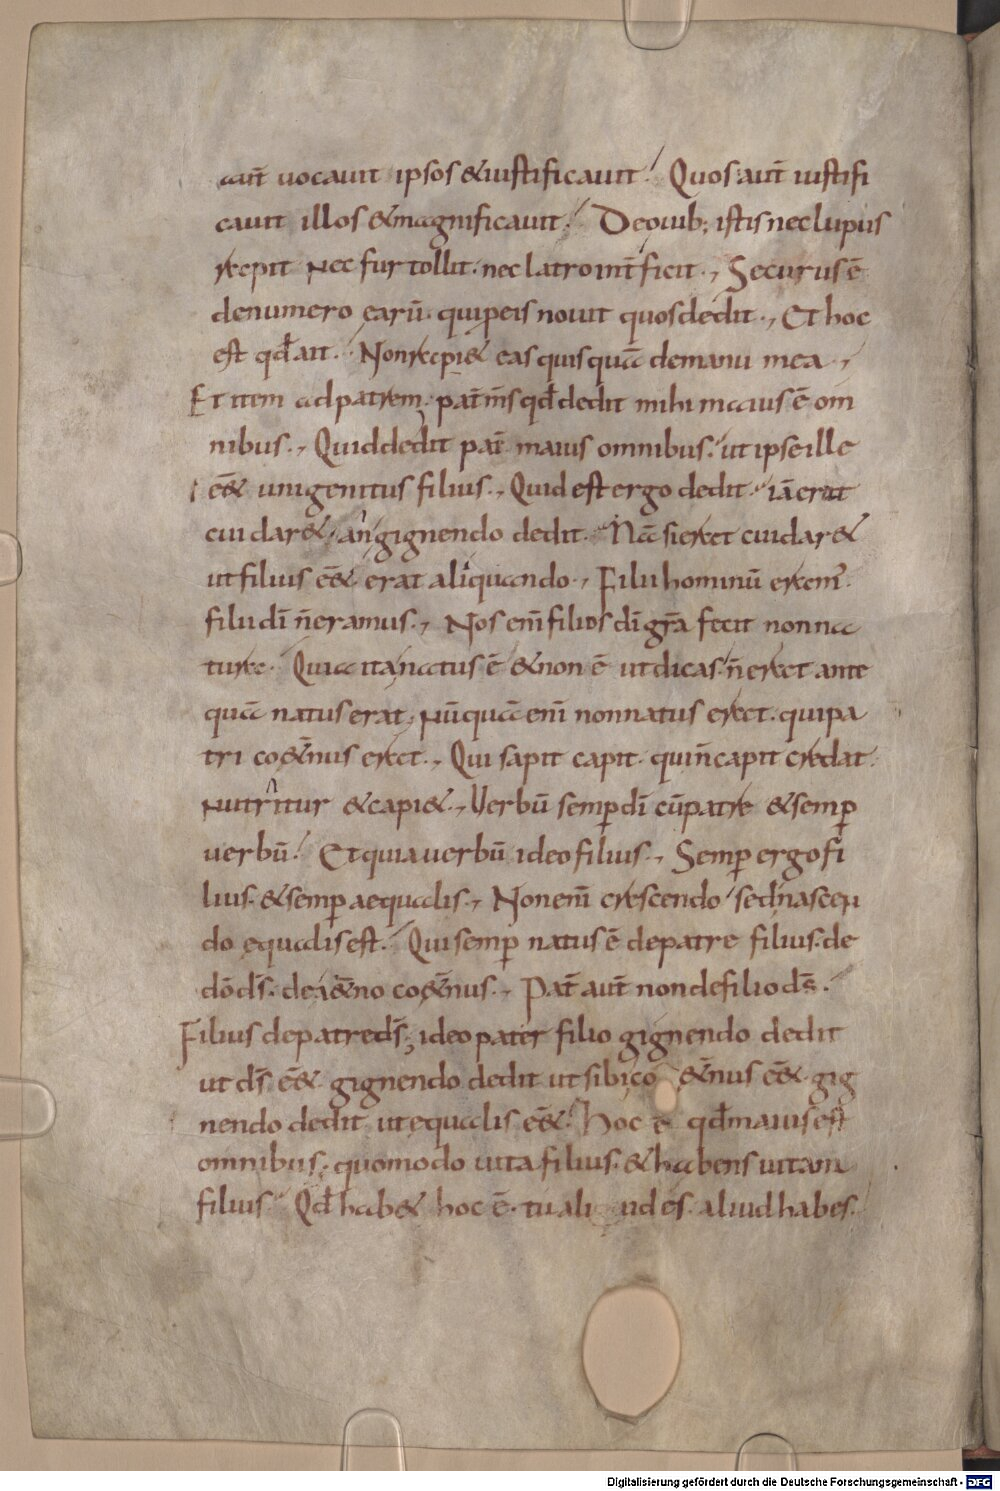 aut̄ uocauit ipsos &iustificauit. Quos aut̄ iustifi
cauit illos &magnificauit. De ouib; istis nec lupus
rapit nec fur tollit. nec latro int̄ficit. Securus ē
denumero earū qui peis nouit quos dedit. Et hoc
est qđ ait. Non rapi& eas quisquā demanu mea
Et item adpatrem. pat̄ m̄s qđ dedit mihi maius ē om
nibus. Quid dedit pat̄ maius omnibus. ut ipse ille
ēē& unigenitus filius. Quid est ergo dedit. iā erat
cui dar& an gignendo dedit. Nā si erat cui dar&
ut filius ēē& erat aliquando. Filii hominū eram̄.
filii dī n̄ eramus. Nos enī filios dī gr̄a fecit non na
tura. Quia ita natus ē &non ē ut dicas n̄ erat ante
quā natus erat, nūquā enī non natus erat. qui pa
tri co&n̄us erat. Qui sapit capit. qui n̄ capit credat.
nutritur &capi&. Verbū semp dī cū patre &semp
uerbū. Et quia uerbū ideo filius. Semp ergo fi
lius. &semp aequalis. Non enī crescendo sed nascen
do equalis est. Qui semp natus ē de patre filius. de
dō ds̄. de a&n̄o co&n̄us. Pat̄ aut̄ non de filio ds̄.
Filius depatre ds̄, ideo pater filio gignendo dedit
ut ds̄ ēē& gignendo dedit ut sibi co &n̄us ēē& gig
nendo dedit ut equalis ēē&. Hoc ē qđ maius est
omnibus. quomodo uita filius. &habens uitam
filius Qđ hab& hoc ē. tu aliud es. aliud habes.
Digitalisierung gefördert durch die Deutsche Forschungsgemeinschaft - DFG